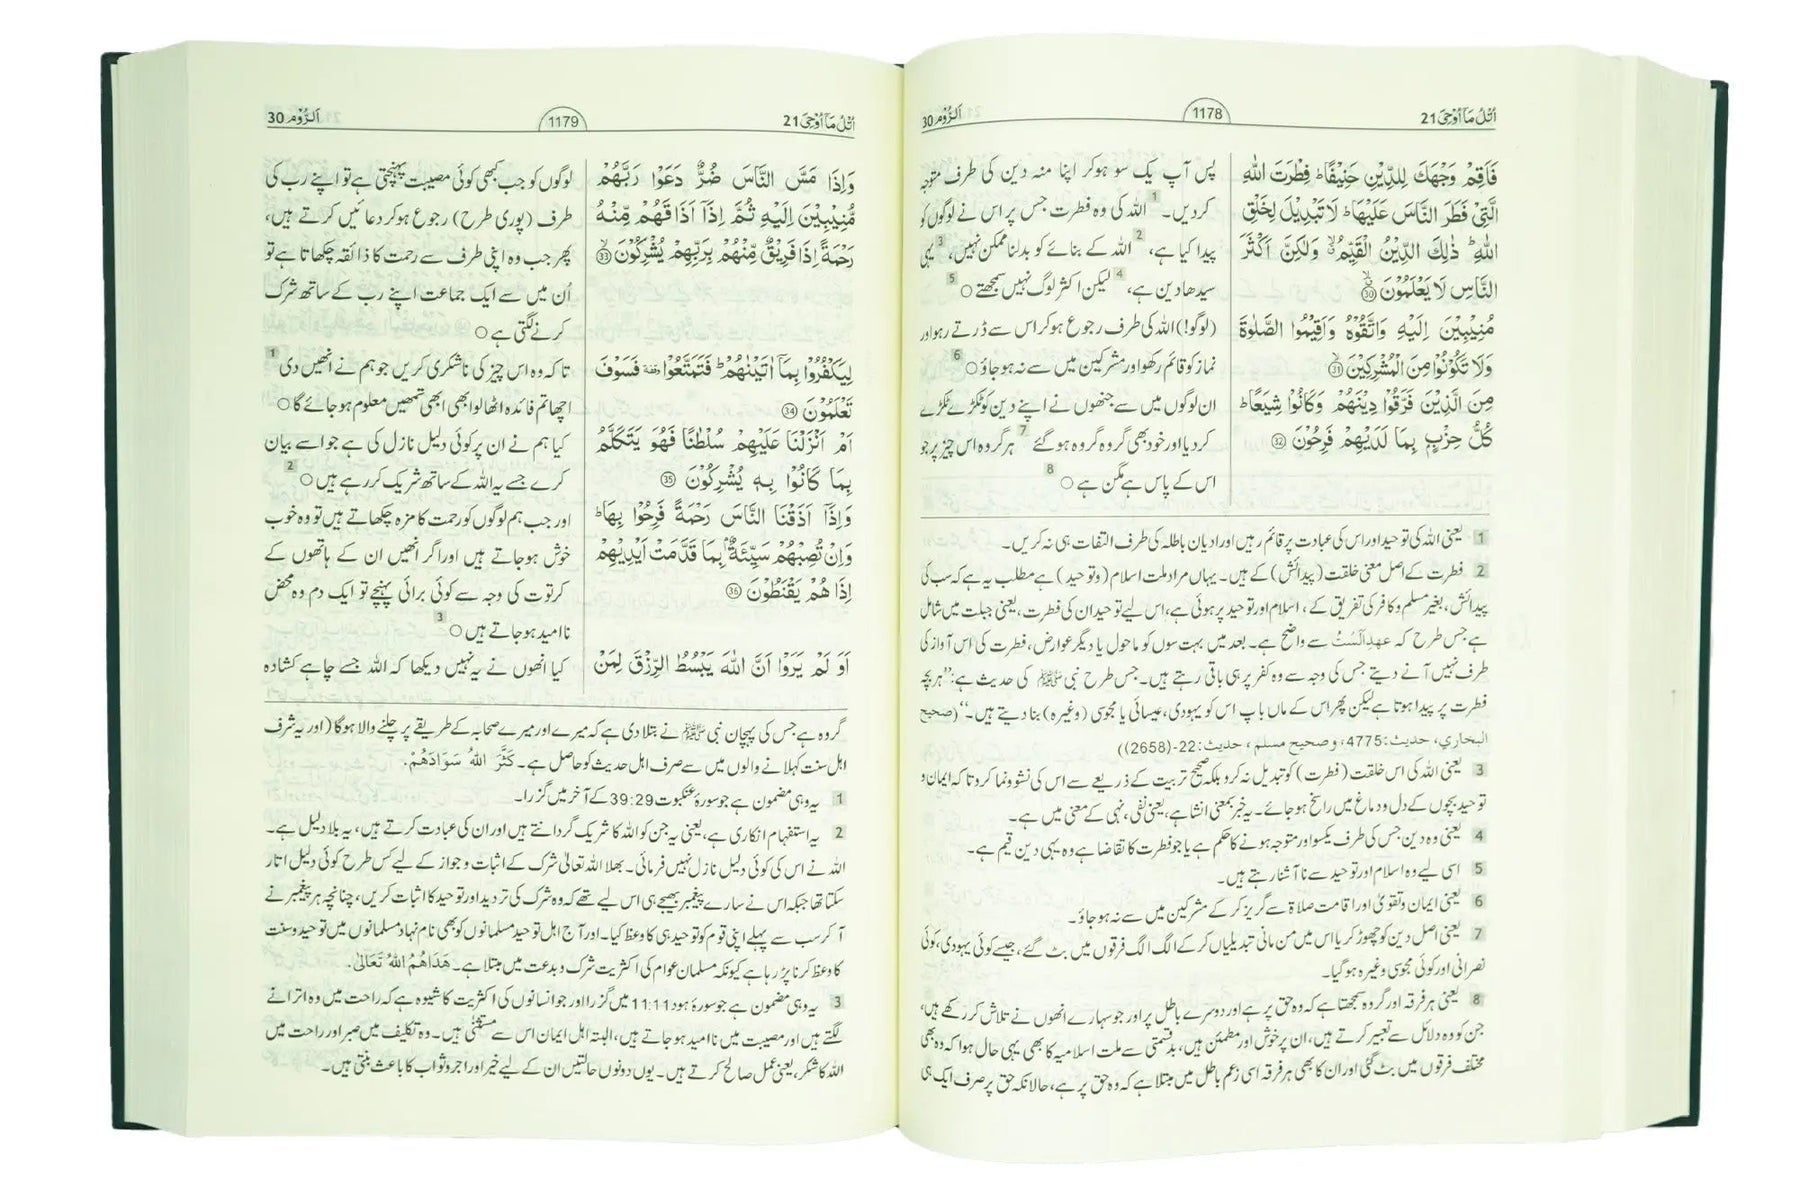 اُتْلُ مَآ اُوْحِیَ 21
1178
اَلرُّوْم 30
فَاَقِمْ وَجْهَكَ لِلدِّیْنِ حَنِیْفًا ؕ فِطْرَتَ اللّٰهِ
الَّتِیْ فَطَرَ النَّاسَ عَلَیْهَا ؕ لَا تَبْدِیْلَ لِخَلْقِ
اللّٰهِ ؕ ذٰلِكَ الدِّیْنُ الْقَیِّمُ ۙ وَلٰكِنَّ اَكْثَرَ
النَّاسِ لَا یَعْلَمُوْنَ ۙ 30
مُنِیْبِیْنَ اِلَیْهِ وَاتَّقُوْهُ وَاَقِیْمُوا الصَّلٰوةَ
وَلَا تَكُوْنُوْا مِنَ الْمُشْرِكِیْنَ ۙ 31
مِنَ الَّذِیْنَ فَرَّقُوْا دِیْنَهُمْ وَكَانُوْا شِیَعًا ؕ
كُلُّ حِزْبٍۭ بِمَا لَدَیْهِمْ فَرِحُوْنَ 32
پس آپ یک سو ہوکر اپنا منہ دین کی طرف متوجہ
کردیں۔ 1 اللہ کی وہ فطرت جس پر اس نے لوگوں کو
پیدا کیا ہے، 2 اللہ کے بنائے کو بدلنا ممکن نہیں، 3 یہی
سیدھا دین ہے، 4 لیکن اکثر لوگ نہیں سمجھتے ○ 5
(لوگو!) اللہ کی طرف رجوع ہوکر اس سے ڈرتے رہو اور
نماز کو قائم رکھو اور مشرکین میں سے نہ ہو جاؤ ○ 6
ان لوگوں میں سے جنھوں نے اپنے دین کو ٹکڑے ٹکڑے
کردیا اور خود بھی گروہ گروہ ہو گئے 7 ہر گروہ اس چیز پر جو
اس کے پاس ہے مگن ہے ○ 8
1 یعنی اللہ کی توحید اور اس کی عبادت پر قائم رہیں اور ادیان باطلہ کی طرف التفات ہی نہ کریں۔
2 فطرت کے اصل معنی خلقت (پیدائش) کے ہیں۔ یہاں مراد ملت اسلام (و توحید) ہے مطلب یہ ہے کہ سب کی
پیدائش، بغیر مسلم و کافر کی تفریق کے، اسلام اور توحید پر ہوئی ہے، اس لیے توحید ان کی فطرت، یعنی جبلت میں شامل
ہے جس طرح کہ عہد اَلَسْتُ سے واضح ہے۔ بعد میں بہت سوں کو ماحول یا دیگر عوارض، فطرت کی اس آواز کی
طرف نہیں آنے دیتے جس کی وجہ سے وہ کفر پر ہی باقی رہتے ہیں۔ جس طرح نبی ﷺ کی حدیث ہے: ’’ہر بچہ
فطرت پر پیدا ہوتا ہے لیکن پھر اس کے ماں باپ اس کو یہودی، عیسائی یا مجوسی (وغیرہ) بنا دیتے ہیں۔‘‘ (صحیح
البخاري، حدیث: 4775، و صحیح مسلم، حدیث: 22-(2658))
3 یعنی اللہ کی اس خلقت (فطرت) کو تبدیل نہ کرو بلکہ صحیح تربیت کے ذریعے سے اس کی نشوونما کرو تاکہ ایمان و
توحید بچوں کے دل و دماغ میں راسخ ہو جائے۔ یہ خبر بمعنی انشا ہے، یعنی نفی، نہی کے معنی میں ہے۔
4 یعنی وہ دین جس کی طرف یکسو اور متوجہ ہونے کا حکم ہے یا جو فطرت کا تقاضا ہے وہ یہی دین قیم ہے۔
5 اسی لیے وہ اسلام اور توحید سے ناآشنا رہتے ہیں۔
6 یعنی ایمان و تقویٰ اور اقامت صلاۃ سے گریز کر کے مشرکین میں سے نہ ہو جاؤ۔
7 یعنی اصل دین کو چھوڑ کر یا اس میں من مانی تبدیلیاں کر کے الگ الگ فرقوں میں بٹ گئے، جیسے کوئی یہودی، کوئی
نصرانی اور کوئی مجوسی وغیرہ ہو گیا۔
8 یعنی ہر فرقہ اور گروہ سمجھتا ہے کہ وہ حق پر ہے اور دوسرے باطل پر اور جو سہارے انھوں نے تلاش کر رکھے ہیں،
جن کو وہ دلائل سے تعبیر کرتے ہیں، ان پر خوش اور مطمئن ہیں، بدقسمتی سے ملت اسلامیہ کا بھی یہی حال ہوا کہ وہ بھی
مختلف فرقوں میں بٹ گئی اور ان کا بھی ہر فرقہ اسی زعم باطل میں مبتلا ہے کہ وہ حق پر ہے، حالانکہ حق پر صرف ایک ہی
اُتْلُ مَآ اُوْحِیَ 21
1179
اَلرُّوْم 30
وَاِذَا مَسَّ النَّاسَ ضُرٌّ دَعَوْا رَبَّهُمْ
مُّنِیْبِیْنَ اِلَیْهِ ثُمَّ اِذَاۤ اَذَاقَهُمْ مِّنْهُ
رَحْمَةً اِذَا فَرِیْقٌ مِّنْهُمْ بِرَبِّهِمْ یُشْرِكُوْنَ ۙ 33
لِیَكْفُرُوْا بِمَاۤ اٰتَیْنٰهُمْ ؕ فَتَمَتَّعُوْا وقفة فَسَوْفَ
تَعْلَمُوْنَ 34
اَمْ اَنْزَلْنَا عَلَیْهِمْ سُلْطٰنًا فَهُوَ یَتَكَلَّمُ
بِمَا كَانُوْا بِهٖ یُشْرِكُوْنَ 35
وَاِذَاۤ اَذَقْنَا النَّاسَ رَحْمَةً فَرِحُوْا بِهَا ؕ
وَاِنْ تُصِبْهُمْ سَیِّئَةٌۢ بِمَا قَدَّمَتْ اَیْدِیْهِمْ
اِذَا هُمْ یَقْنَطُوْنَ 36
اَوَ لَمْ یَرَوْا اَنَّ اللّٰهَ یَبْسُطُ الرِّزْقَ لِمَنْ
لوگوں کو جب کبھی کوئی مصیبت پہنچتی ہے تو اپنے رب کی
طرف (پوری طرح) رجوع ہوکر دعائیں کرتے ہیں،
پھر جب وہ اپنی طرف سے رحمت کا ذائقہ چکھاتا ہے تو
اُن میں سے ایک جماعت اپنے رب کے ساتھ شرک
کرنے لگتی ہے ○
تاکہ وہ اس چیز کی ناشکری کریں جو ہم نے انھیں دی 1
اچھا تم فائدہ اٹھا لو ابھی ابھی تمھیں معلوم ہو جائے گا ○
کیا ہم نے ان پر کوئی دلیل نازل کی ہے جو اسے بیان
کرے جسے یہ اللہ کے ساتھ شریک کر رہے ہیں ○ 2
اور جب ہم لوگوں کو رحمت کا مزہ چکھاتے ہیں تو وہ خوب
خوش ہو جاتے ہیں اور اگر انھیں ان کے ہاتھوں کے
کرتوت کی وجہ سے کوئی برائی پہنچے تو ایک دم وہ محض
ناامید ہو جاتے ہیں ○ 3
کیا انھوں نے یہ نہیں دیکھا کہ اللہ جسے چاہے کشادہ
گروہ ہے جس کی پہچان نبی ﷺ نے بتلا دی ہے کہ میرے اور میرے صحابہ کے طریقے پر چلنے والا ہوگا (اور یہ شرف
اہل سنت کہلانے والوں میں سے صرف اہل حدیث کو حاصل ہے۔ كَثَّرَ اللّٰهُ سَوَادَهُمْ.
1 یہ وہی مضمون ہے جو سورۂ عنکبوت 39:29 کے آخر میں گزرا۔
2 یہ استفہام انکاری ہے، یعنی یہ جن کو اللہ کا شریک گردانتے ہیں اور ان کی عبادت کرتے ہیں، یہ بلا دلیل ہے۔
اللہ نے اس کی کوئی دلیل نازل نہیں فرمائی۔ بھلا اللہ تعالیٰ شرک کے اثبات و جواز کے لیے کس طرح کوئی دلیل اتار
سکتا تھا جبکہ اس نے سارے پیغمبر بھیجے ہی اس لیے تھے کہ وہ شرک کی تردید اور توحید کا اثبات کریں، چنانچہ ہر پیغمبر نے
آ کر سب سے پہلے اپنی قوم کو توحید ہی کا وعظ کیا۔ اور آج اہل توحید مسلمانوں کو بھی نام نہاد مسلمانوں میں توحید و سنت
کا وعظ کرنا پڑ رہا ہے کیونکہ مسلمان عوام کی اکثریت شرک و بدعت میں مبتلا ہے۔ هَدَاهُمُ اللّٰهُ تَعَالٰی.
3 یہ وہی مضمون ہے جو سورۂ ہود 11:11 میں گزرا اور جو انسانوں کی اکثریت کا شیوہ ہے کہ راحت میں وہ اترانے
لگتے ہیں اور مصیبت میں ناامید ہو جاتے ہیں، البتہ اہل ایمان اس سے مستثنیٰ ہیں۔ وہ تکلیف میں صبر اور راحت میں
اللہ کا شکر، یعنی عمل صالح کرتے ہیں۔ یوں دونوں حالتیں ان کے لیے خیر اور اجر و ثواب کا باعث بنتی ہیں۔